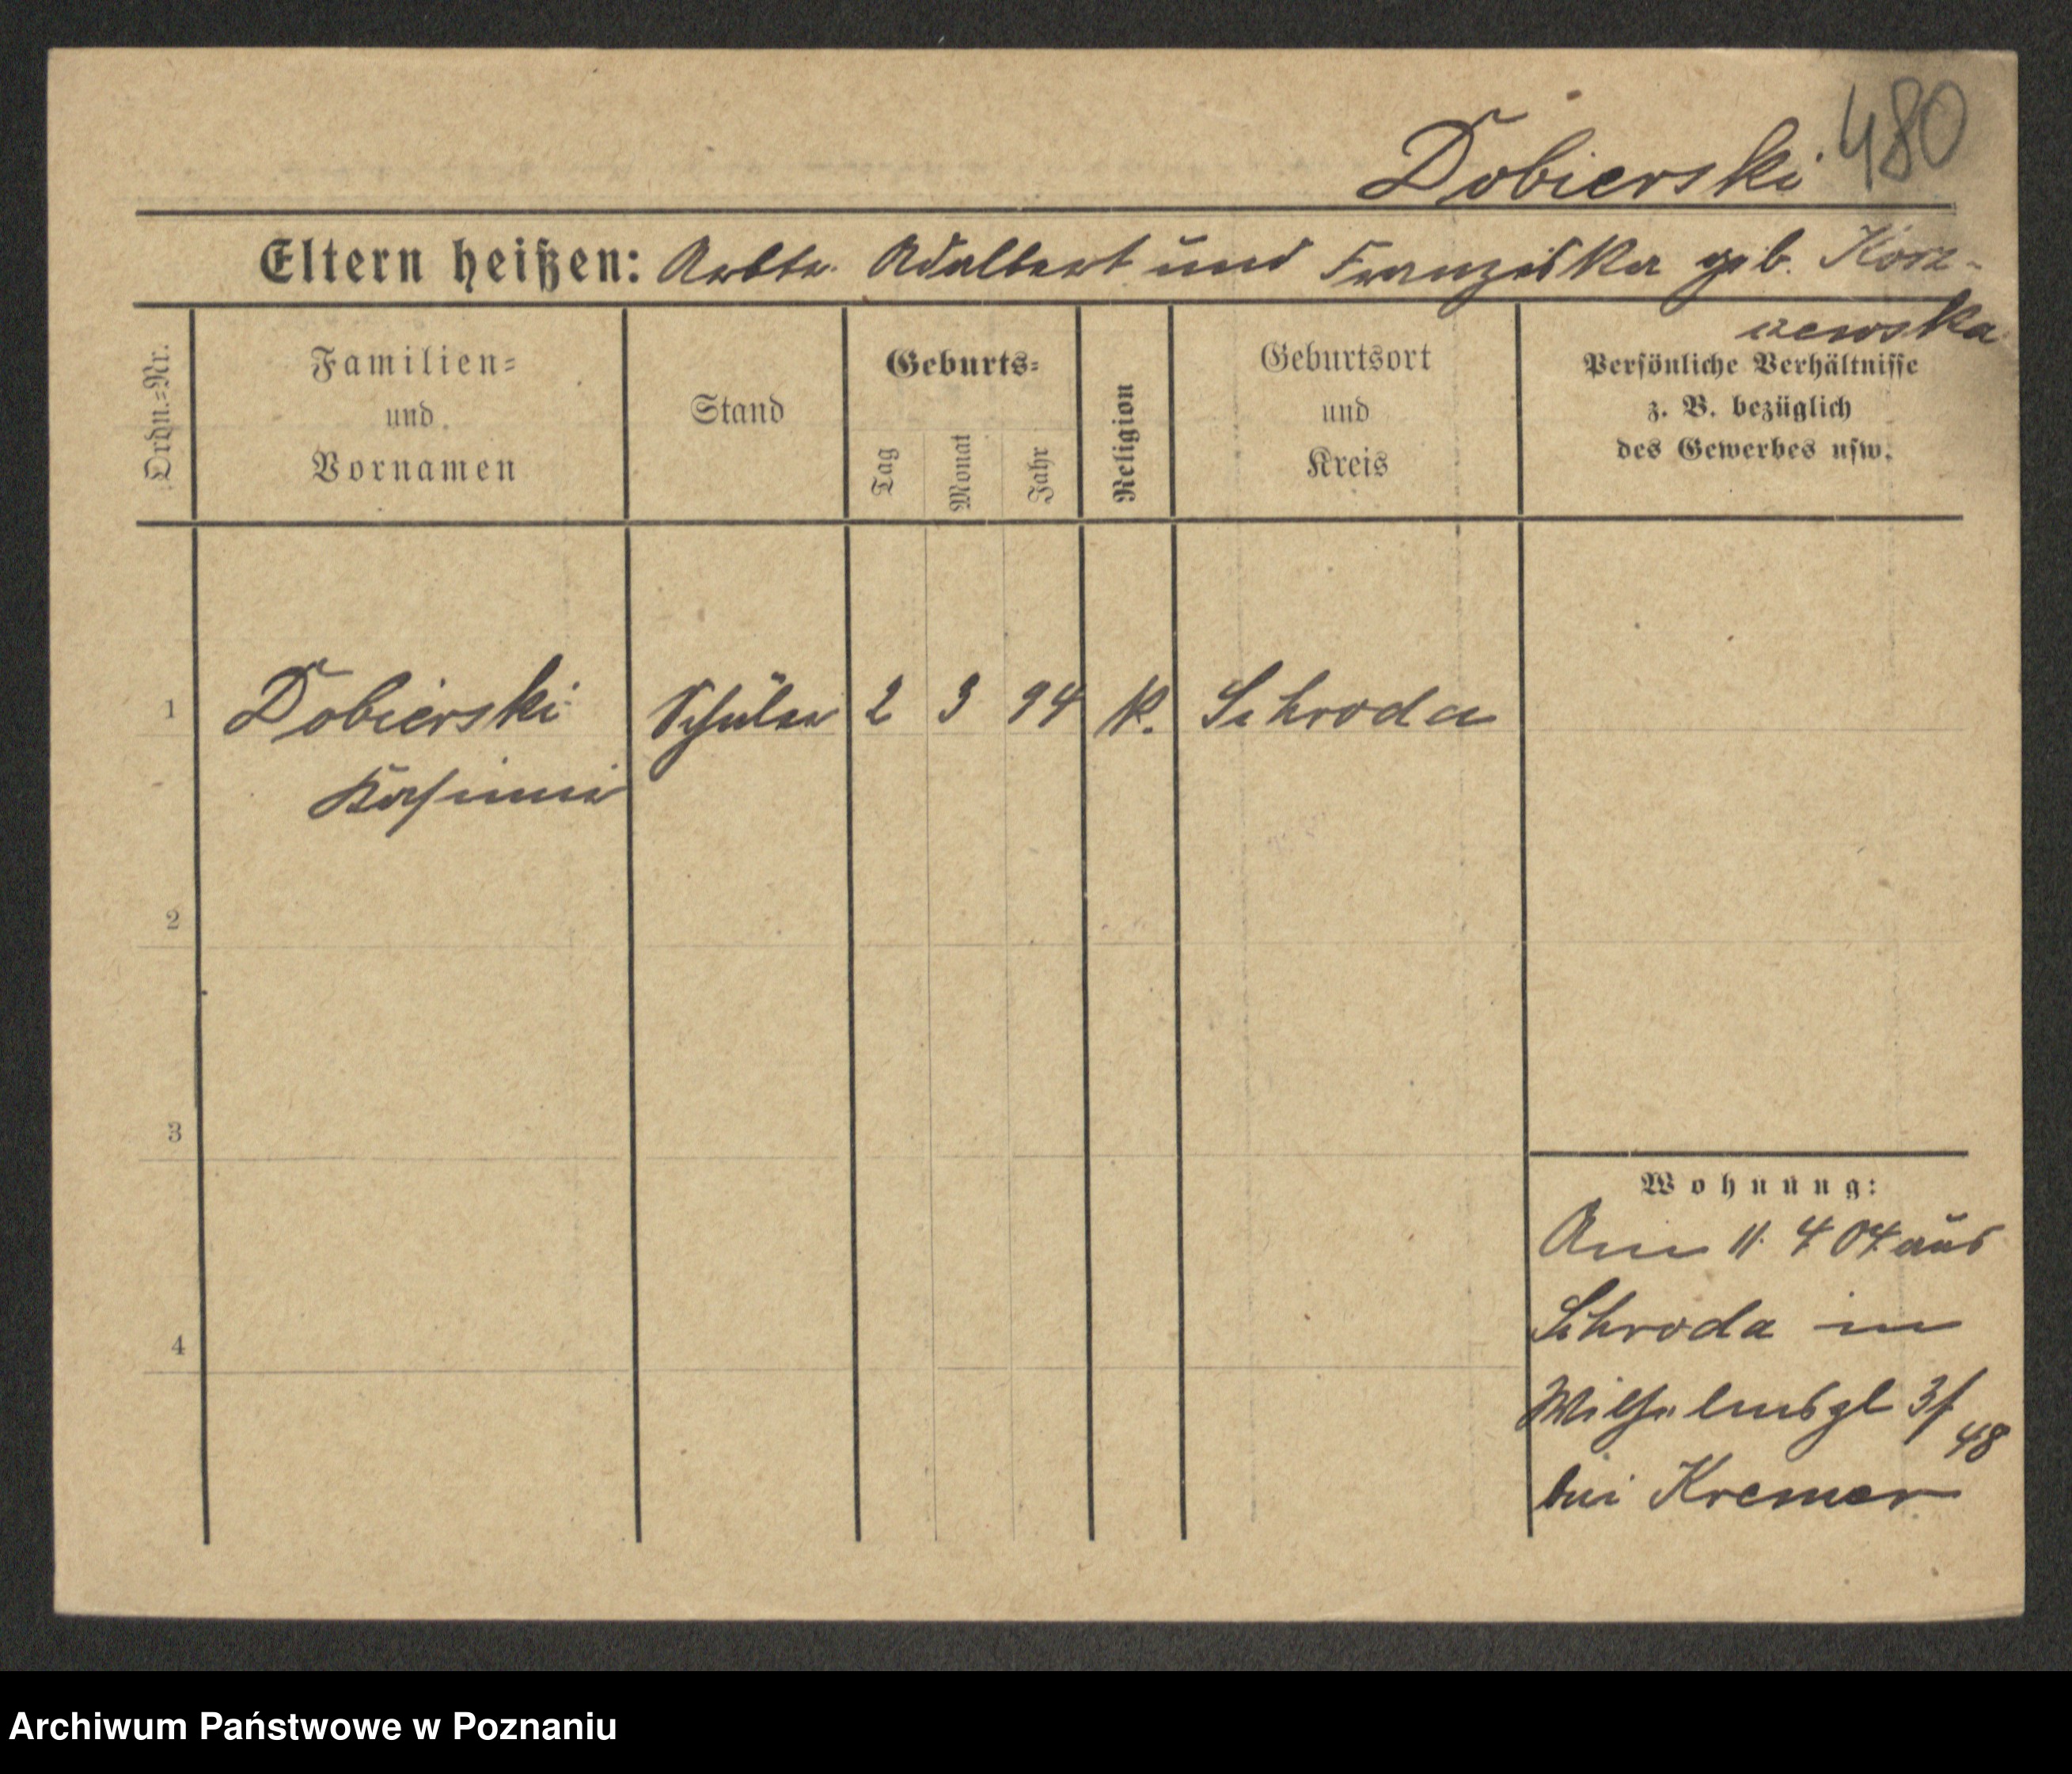 480
Dobierski
Eltern heißen: Arbtr. Adalbert und Franziska geb. Korz-
zewska
Ordn.-Nr.
Familien-
und
Vornamen
Stand
Geburts-
Tag
Monat
Jahr
Religion
Geburtsort
und
Kreis
Persönliche Verhältnisse
z. B. bezüglich
des Gewerbes usw.
1 Dobierski Schüler 2 3 94 K. Schroda
2
3
4
Wohnung:
Am 11. 4 04 aus
Schroda in
Wilhelmspl 3/
48
bei Kremer
Archiwum Państwowe w Poznaniu